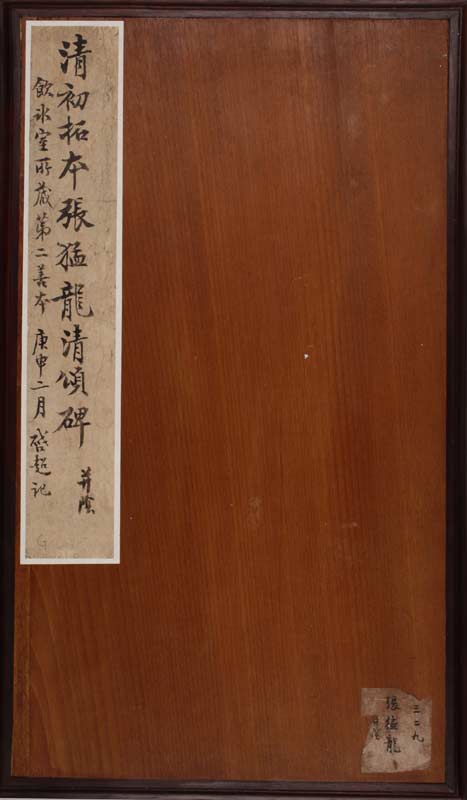 清初拓本張猛龍清頌碑
并陰
飲冰室所藏第二善本 庚申二月 啓超記
三二九
張猛龍
并陰